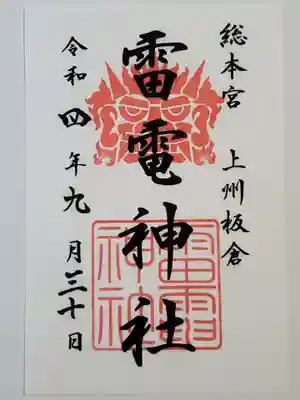 総本宮 上州板倉
雷電神社
雷電神社
令和四年九月三十日